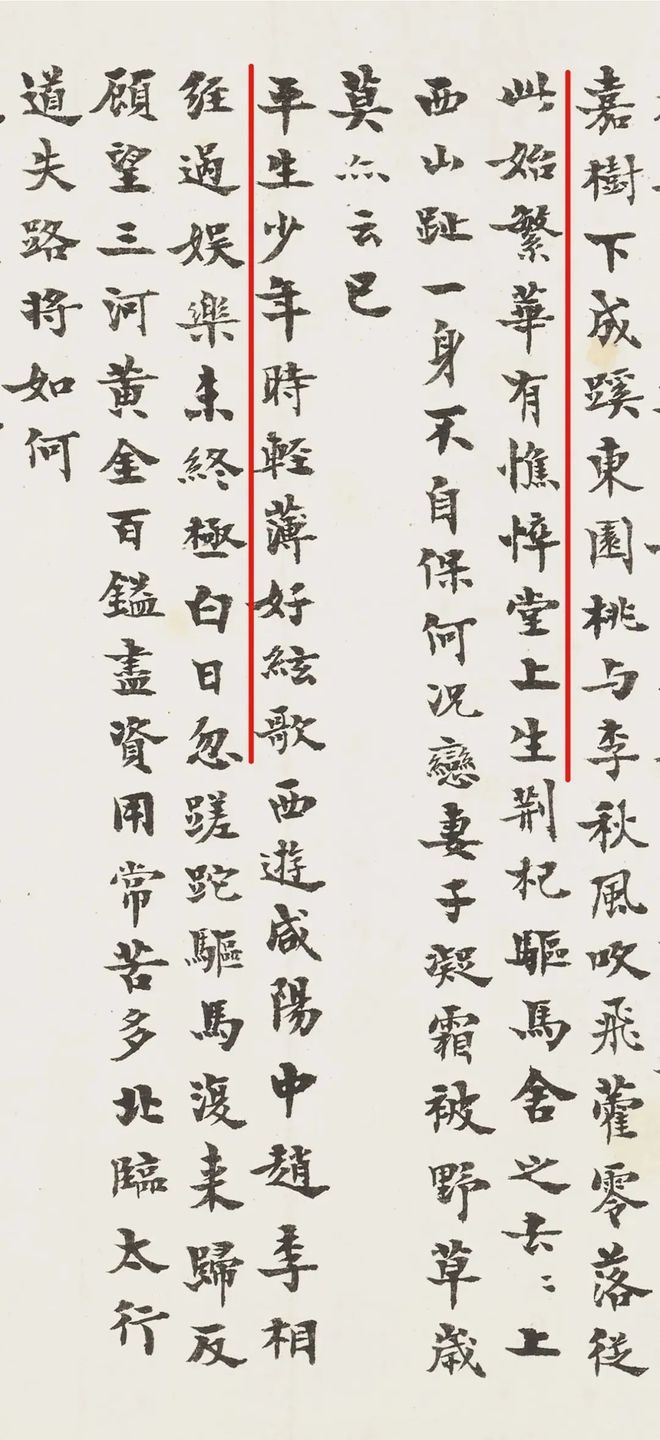 嘉樹下成蹊東園桃与李秋風吹飛藿零落従
此始繁華有憔悴堂上生荆杞驅馬舍之去〻上
西山趾一身不自保何況戀妻子凝霜被野草歳
莫亦云已
平生少年時輕薄好絃歌西遊咸陽中趙李相
經過娛樂未終極白日忽蹉跎驅馬復来歸反
顧望三河黄金百鎰盡資用常苦多北臨太行
道失路将如何